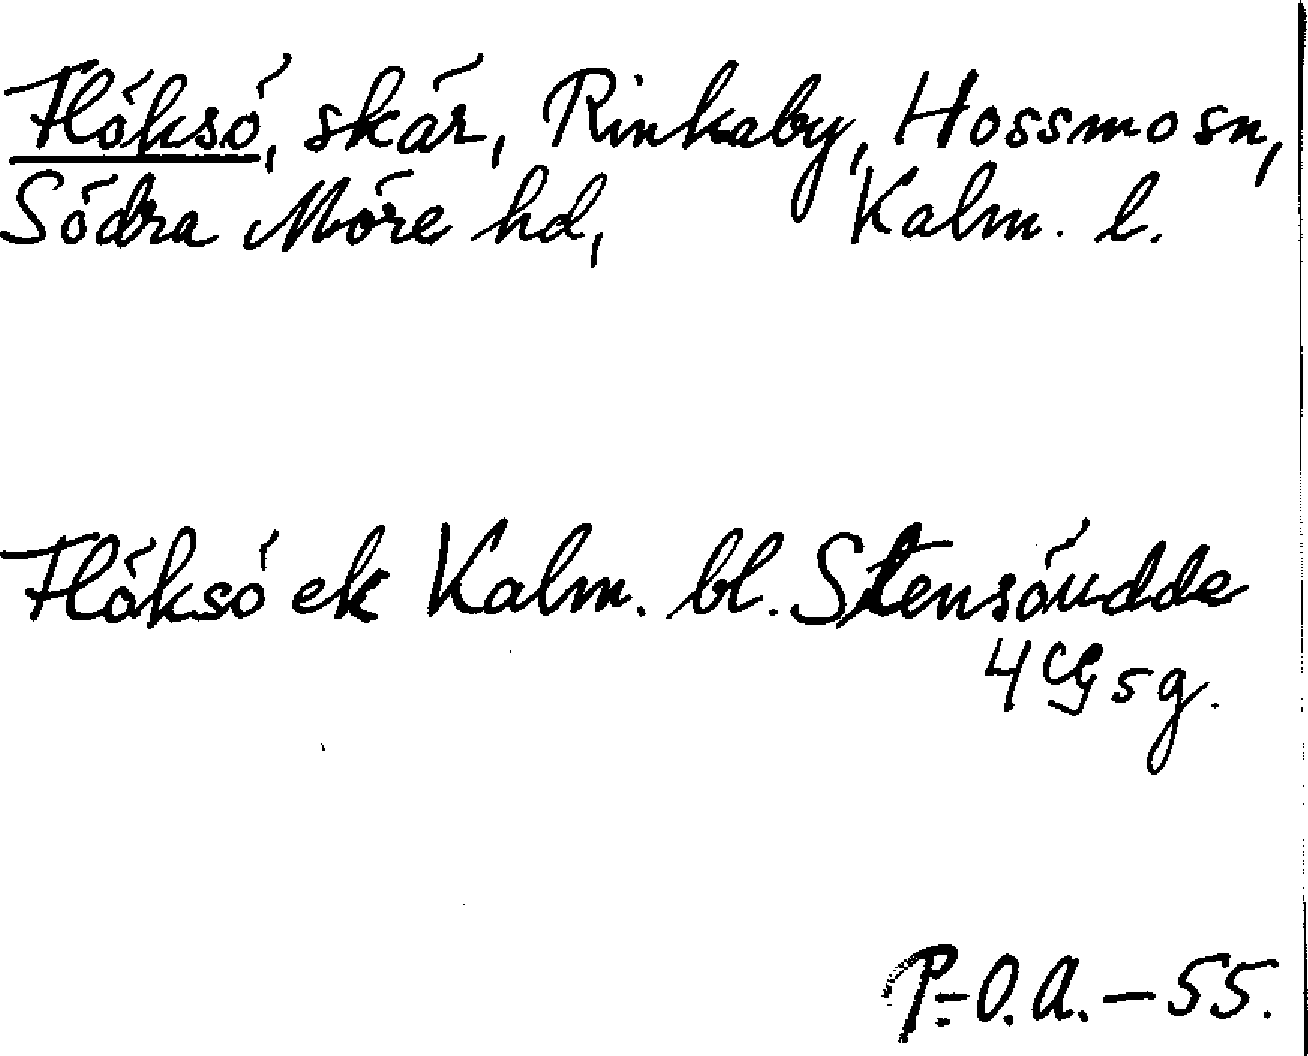 Flöksö, skär, Rinkaby, Hossmo sn,
Södra Möre hd, Kalm. l.
Flöksö ek Kalm. bl. Stensöudde
4 G 5 g.
P.-O. A. – 55.